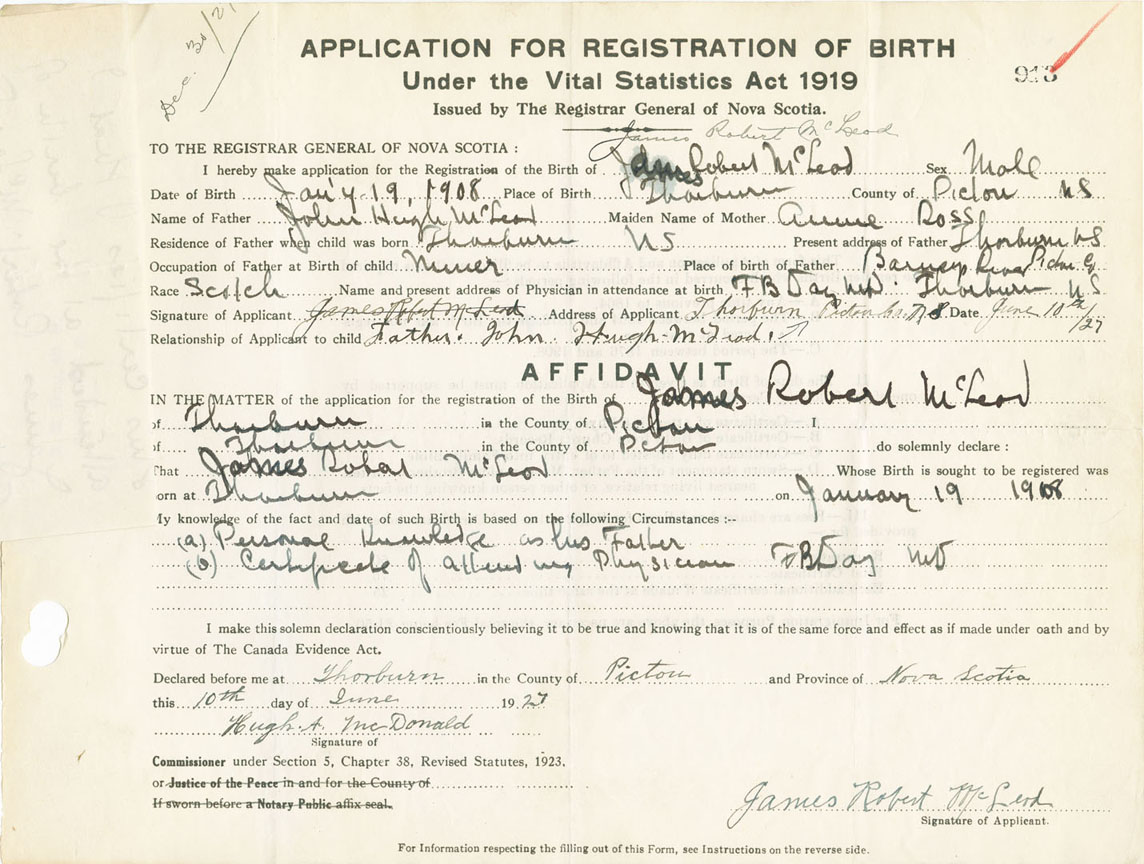 Dec. 30/21
APPLICATION FOR REGISTRATION OF BIRTH
Under the Vital Statistics Act 1919
913
Issued by The Registrar General of Nova Scotia.
James Robert McLeod
TO THE REGISTRAR GENERAL OF NOVA SCOTIA :
I hereby make application for the Registration of the Birth of James Robert McLeod Sex Male
Date of Birth Jan'y 19, 1908 Place of Birth Thorburn County of Pictou NS
Name of Father John Hugh McLeod Maiden Name of Mother Annie Ross
Residence of Father when child was born Thorburn NS Present address of Father Thorburn NS
Occupation of Father at Birth of child Miner Place of birth of Father Barneys River Pictou Co
Race Scotch Name and present address of Physician in attendance at birth FB Day MD. Thorburn NS
Signature of Applicant James Robert McLeod Address of Applicant Thorburn Pictou Co. N.S Date June 10th/27
Relationship of Applicant to child Father. John Hugh McLeod.
AFFIDAVIT
IN THE MATTER of the application for the registration of the Birth of James Robert McLeod
of Thorburn in the County of Pictou I.
of Thorburn in the County of Pictou do solemnly declare :
That James Robert McLeod Whose Birth is sought to be registered was
born at Thorburn on January 19 1908
My knowledge of the fact and date of such Birth is based on the following Circumstances :--
(a) Personal Knowledge as his Father
(b) Certificate of attending Physician FB Day MD
I make this solemn declaration conscientiously believing it to be true and knowing that it is of the same force and effect as if made under oath and by
virtue of The Canada Evidence Act.
Declared before me at Thorburn in the County of Pictou and Province of Nova Scotia
this 10th day of June 1927
Hugh A. McDonald
Signature of
Commissioner under Section 5, Chapter 38, Revised Statutes, 1923.
or Justice of the Peace in and for the County of
If sworn before a Notary Public affix seal.
James Robert McLeod
Signature of Applicant.
For Information respecting the filling out of this Form, see Instructions on the reverse side.